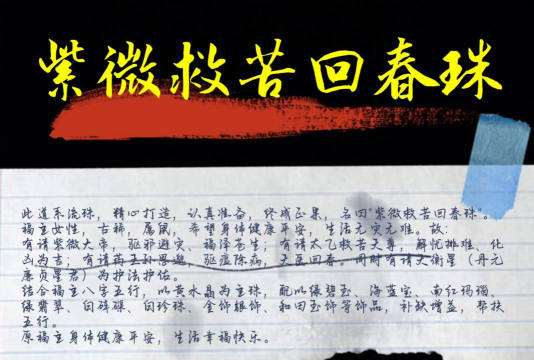 紫微救苦回春珠
此道系流珠，精心打造，认真准备，终成正果，名曰"紫微救苦回春珠"。
福主女性，古稀，属鼠，希望身体健康平安，生活无灾无难。故：
有请紫微大帝，驱邪避灾、福泽苍生；有请太乙救苦天尊，解忧排难、化
凶为吉；有请药王孙思邈，驱瘟除病，大医回春。同时有请天衡星（丹元
廉贞星君）为护法护佑。
结合福主八字五行，以黄水晶为主珠，配以绿碧玉、海蓝宝、南红玛瑙、
绿翡翠、白砗磲、白珍珠、金饰银饰、和田玉饰等饰品，补缺增益，帮扶
五行。
愿福主身体健康平安，生活幸福快乐。